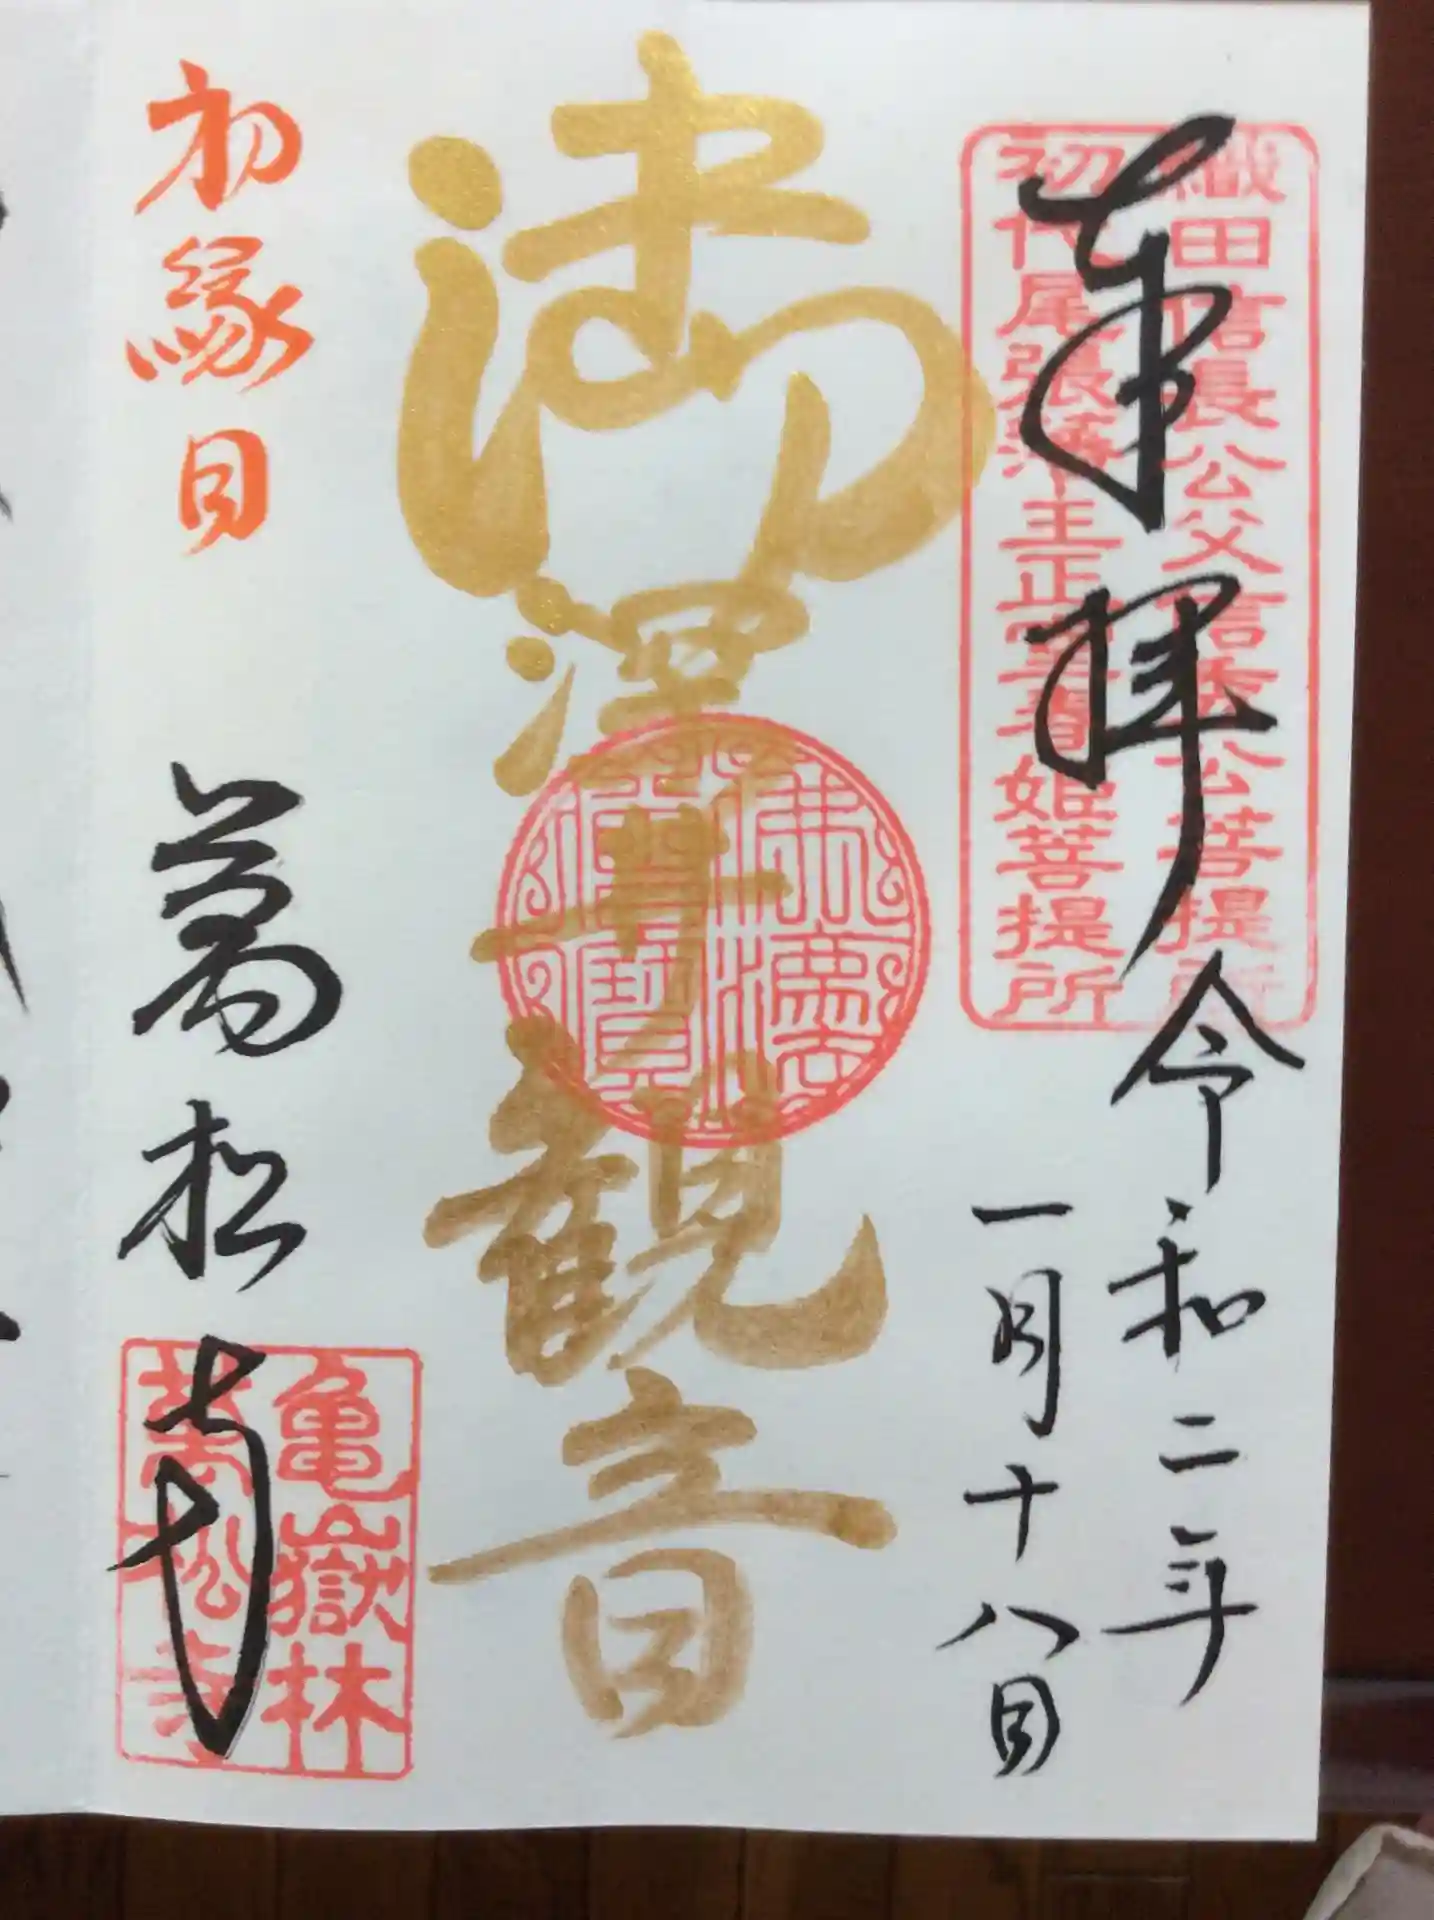 奉拝
令和二年
一月十八日
織田信長公父信秀公菩提所
初代尾張藩主正室春姫菩提所
御深井観音
佛法僧寶
初縁日
萬松寺
亀嶽林
萬松寺